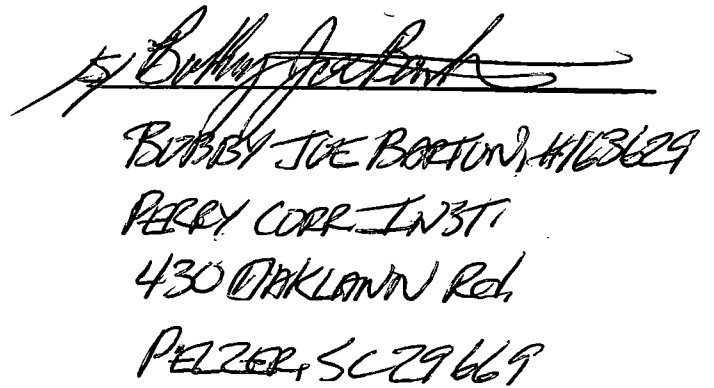 s/ Bobby Joe Barton
BOBBY JOE BARTON, #163629
PERRY CORR. INST.
430 OAKLAWN Rd.
PELZER, SC 29669